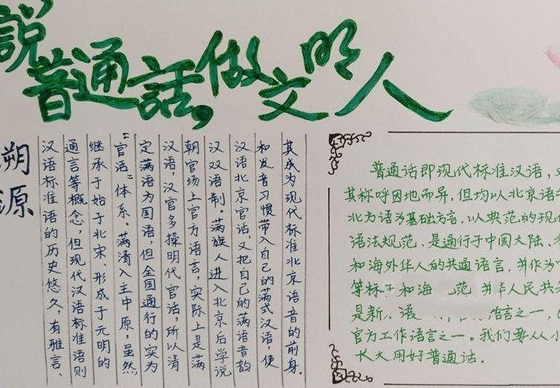 說普通話,做文明人
溯源
汉语标准语的历史悠久,有雅言、
通言等概念,但现代汉语标准语则
继承于始于北宋、形成于元明的
“官话”体系。满清入主中原,虽然
定满语为国语,但全国通行的实为
汉语,汉官多操明代官话,所以清
朝官场上官方语言,实际上是满
汉双语制。满族人进入北京后学说
汉语北京官话又把自己的满语音韵
和发音习惯带入自己的满式汉语,使
其成为现代标准北京语音的前身。
普通话即现代标准汉语,
其称呼因地而异,但均以北京语
北为语为基础方言,以典范的现
语法规范,是通行于中国大陆、
和海外华人的共通语言,并作为
等标于和海 范 华人民共
是新、语 语言之一。
官方工作语言之一。我们要从小
长大用好普通话。